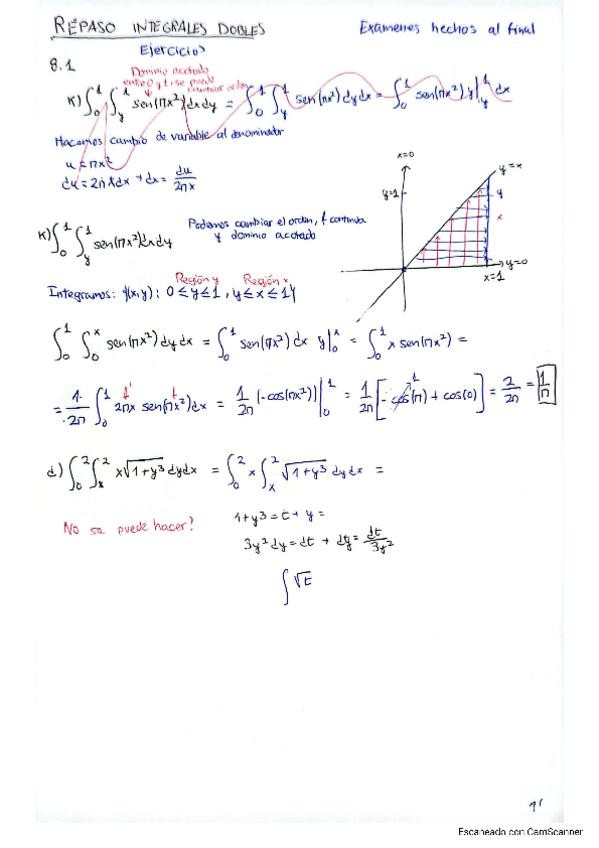 REPASO INTEGRALES DOBLES
Examenes hechos al final
Ejercicios
8.1
Dominio acotado
entre 0 y 1, se puede
cambiar orden
K) ∫₀¹ ∫_y¹ sen(πx²) dx dy = ∫₀¹ ∫_y¹ sen(πx²) dy dx = ∫₀¹ sen(πx²) y |_y¹ dx
Hacemos cambio de variable al denominador
u = πx²
du = 2πx dx → dx = du/2πx
x=0
y=x
y=1
y
x
y=0
x=1
K) ∫₀¹ ∫_y¹ sen(πx²) dx dy
Podemos cambiar el orden, f continua
y dominio acotado
Región y Región x
Integramos: {(x,y): 0 ≤ y ≤ 1, y ≤ x ≤ 1}
∫₀¹ ∫₀ˣ sen(πx²) dy dx = ∫₀¹ sen(πx²) dx y|₀ˣ = ∫₀¹ x sen(πx²) =
= 1/2π ∫₀¹ 2πx sen(πx²) dx = 1/2π (-cos(πx²)) |₀¹ = 1/2π [-cos(π) + cos(0)] = 2/2π = 1/π
d) ∫₀² ∫ₓ² x√(1+y³) dy dx = ∫₀² x ∫ₓ² √(1+y³) dy dx =
No se puede hacer?
1+y³ = t → y =
3y² dy = dt → dy = dt/3y²
∫ √t
Escaneado con CamScanner